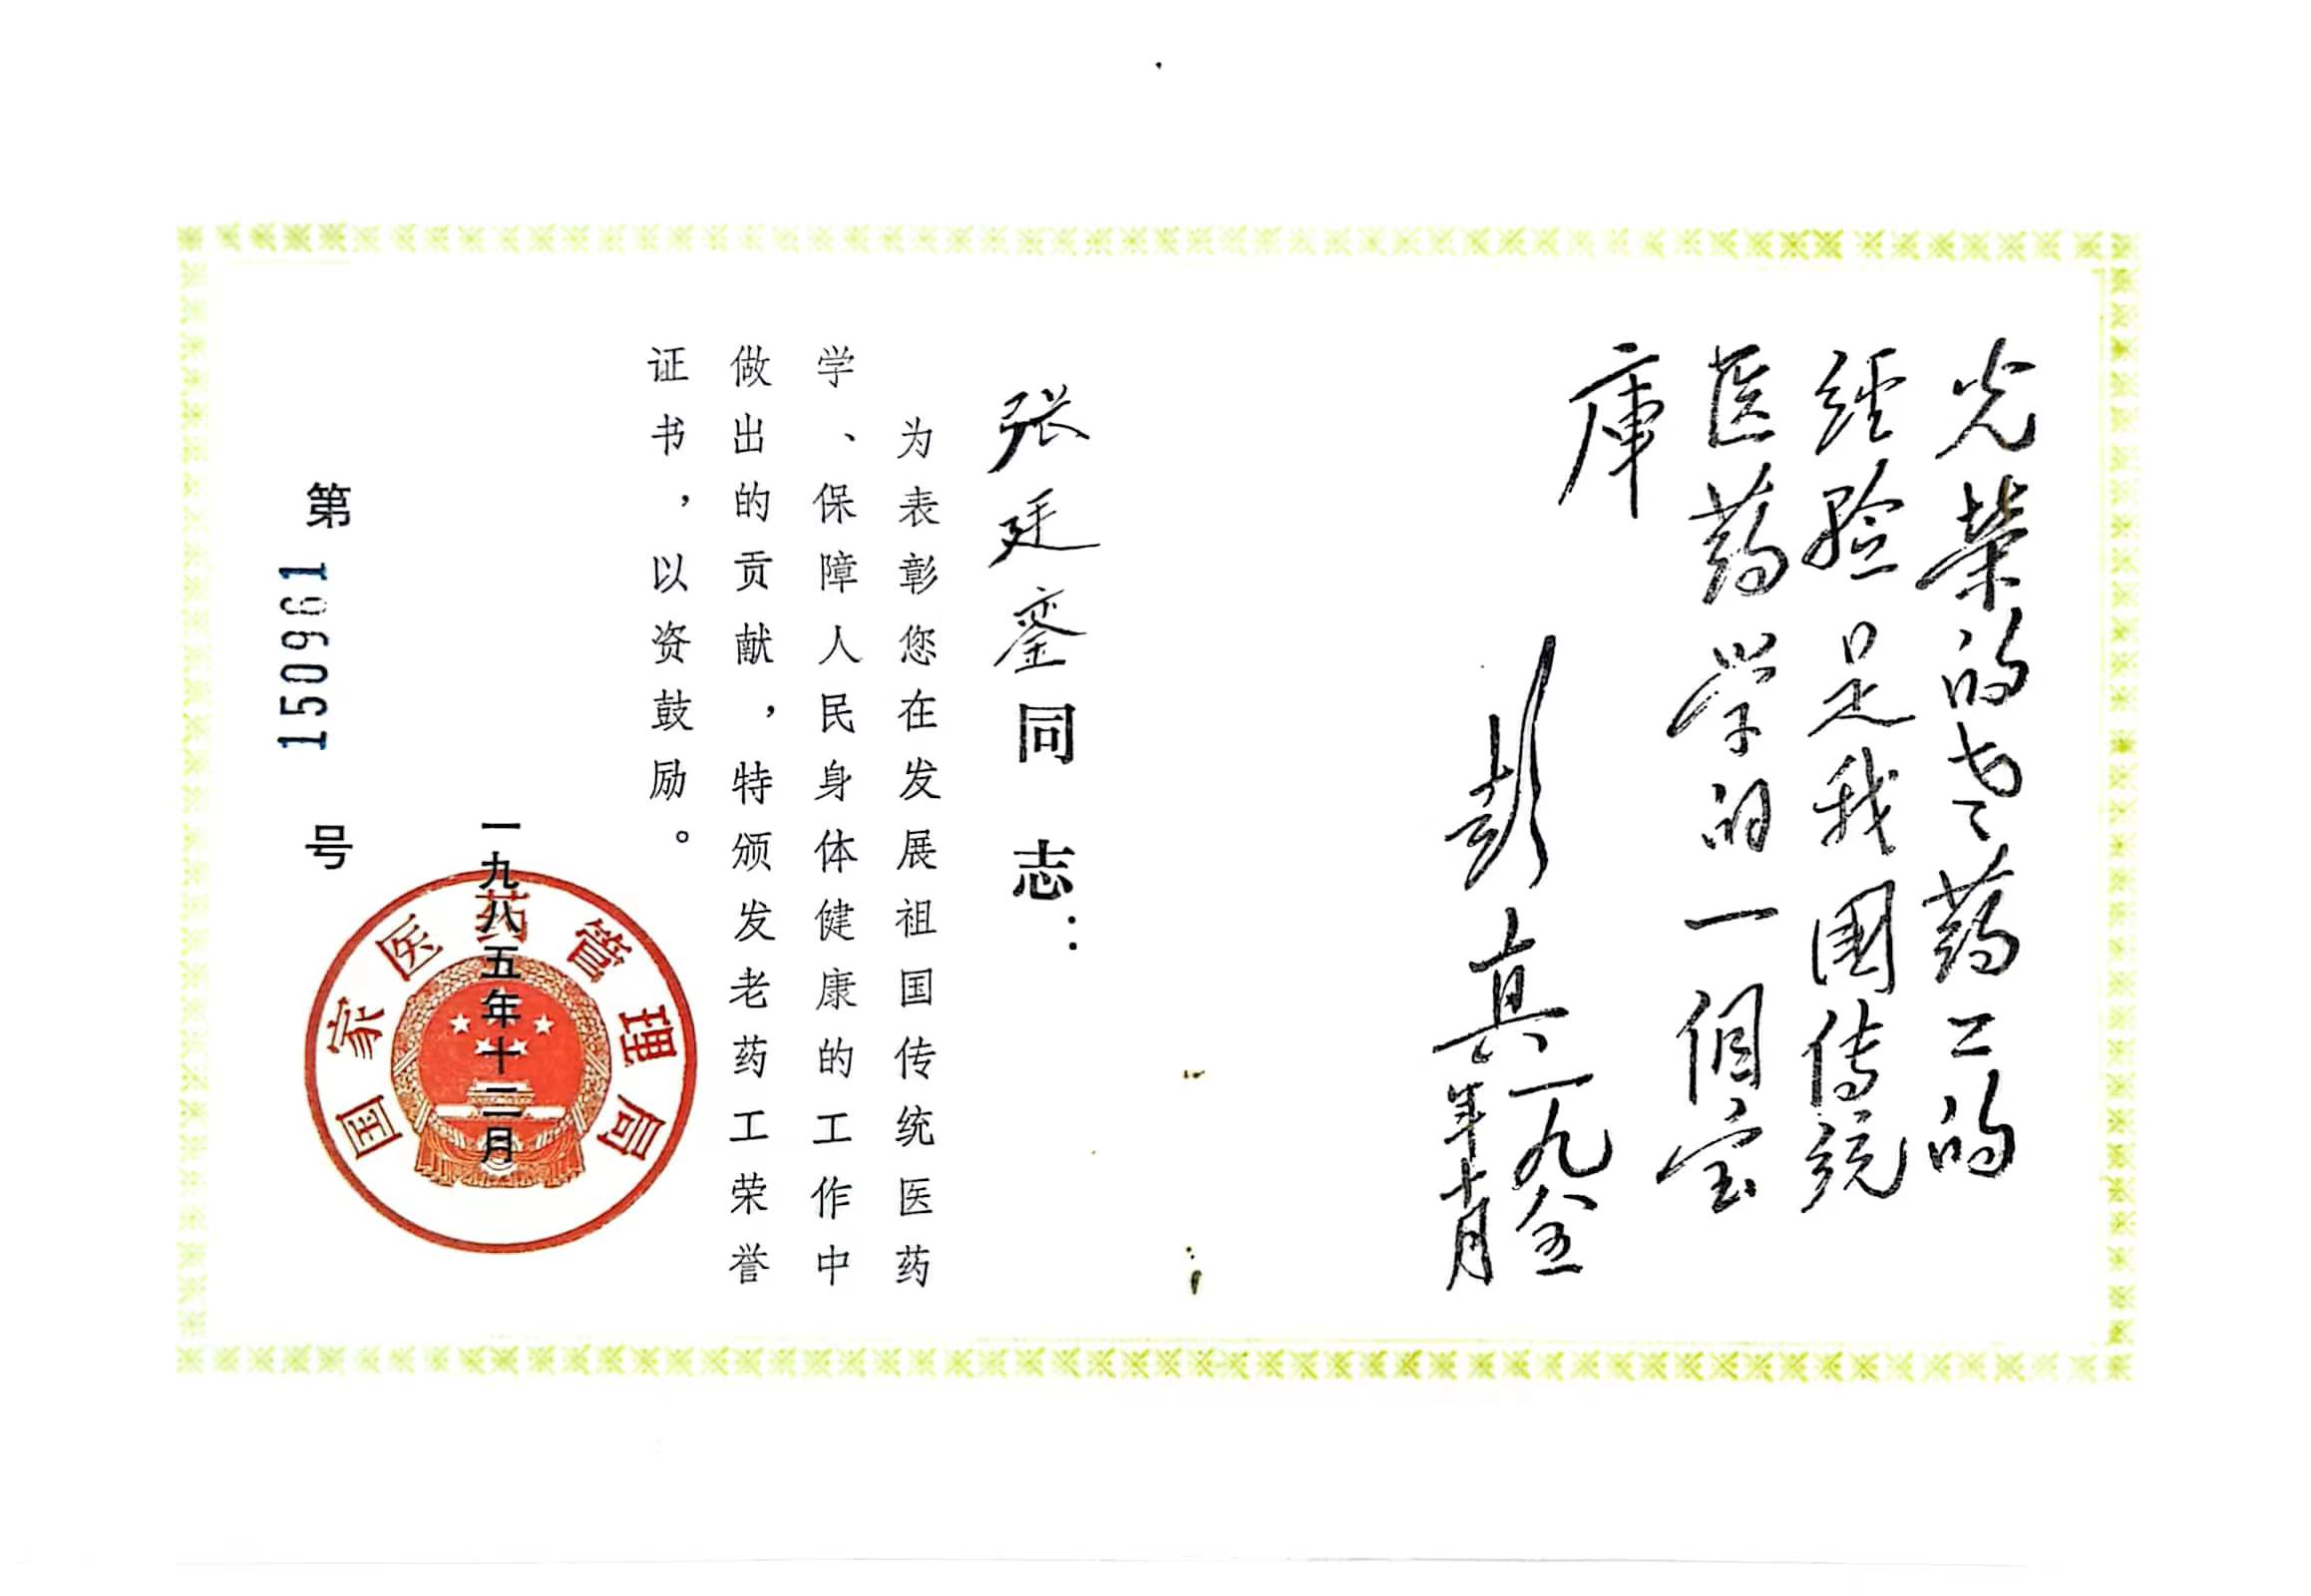 光荣的老药工的
经验是我国传统
医药学的一个宝
库
彭真一九八五
年十月
张廷銮同志：
为表彰您在发展祖国传统医药
学、保障人民身体健康的工作中
做出的贡献，特颁发老药工荣誉
证书，以资鼓励。
一九八五年十二月
国家医药管理局
第150961号